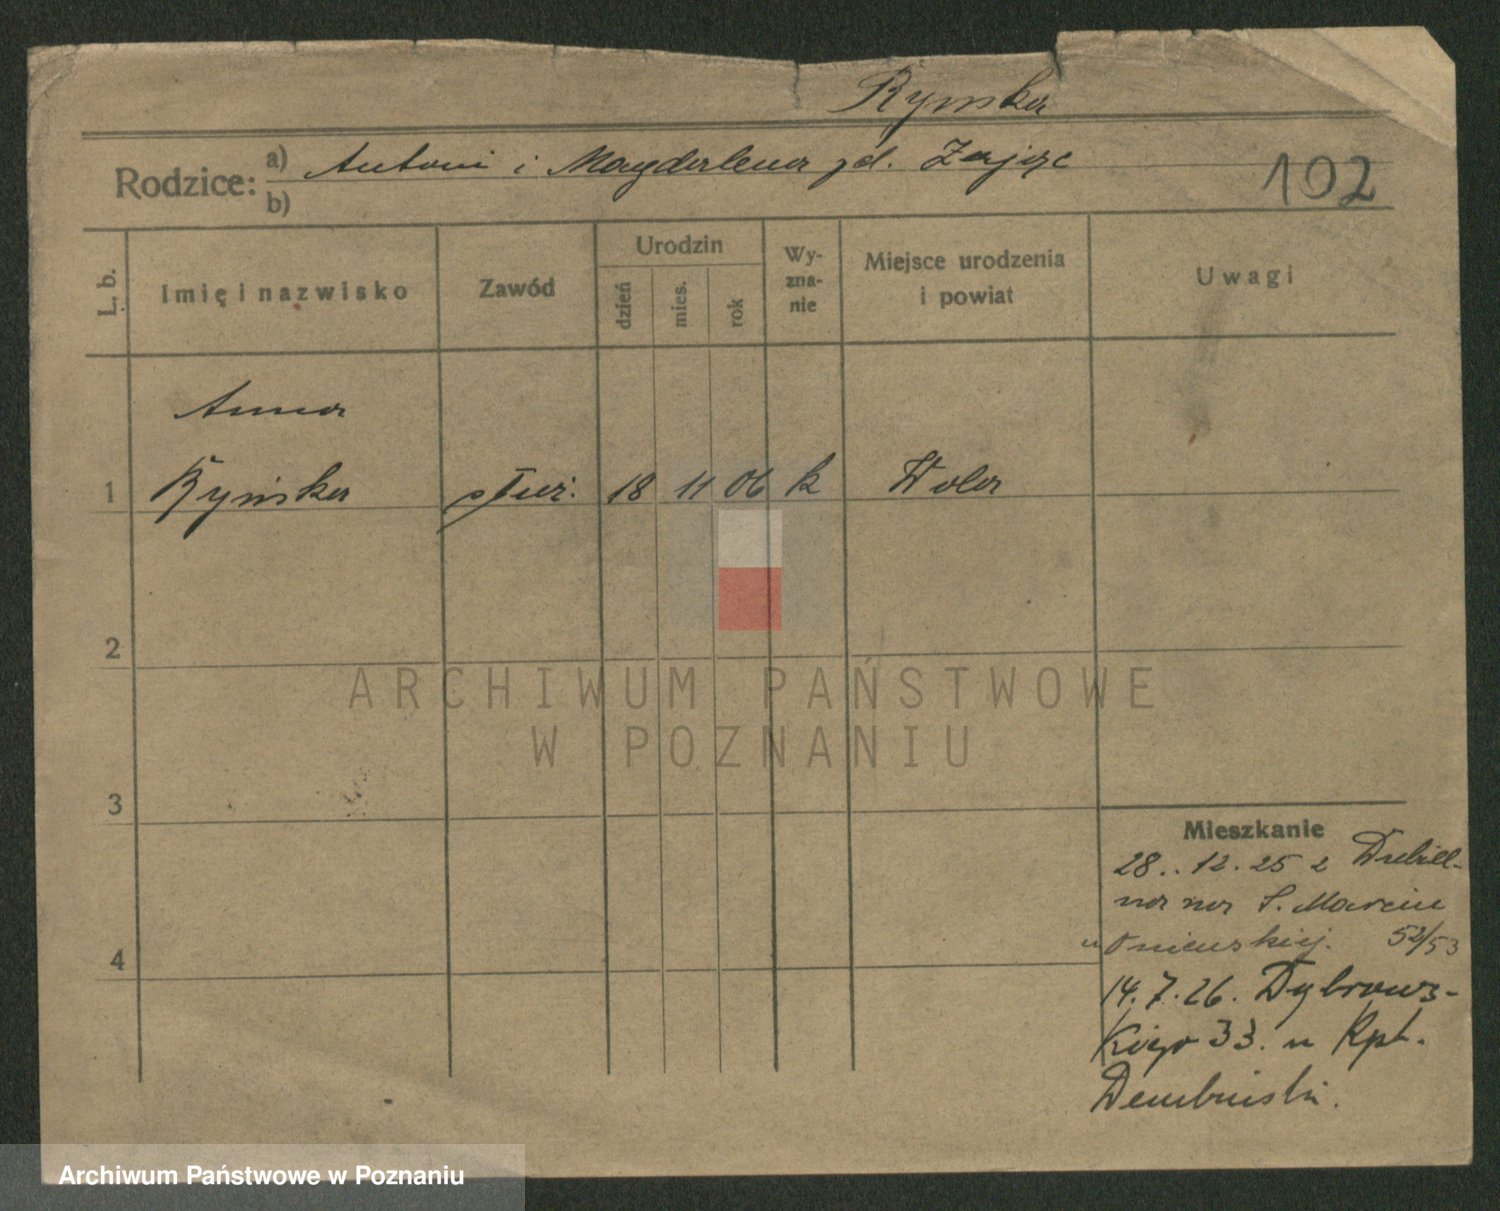 Rymska
Rodzice: a) Antoni i Magdalena zd. Zając
b)
102
L. b.
Imię i nazwisko
Zawód
Urodzin
dzień
mies.
rok
Wy-
zna-
nie
Miejsce urodzenia
i powiat
Uwagi
Anna
1 Rymska służ. 18 11 06 k Wola
2
3
4
Mieszkanie
28.. 12. 25 z
na na S. Marcin
52/53
14. 7. 26. Dąbrows-
kiego 33. u Kpt.
Dembiński.
ARCHIWUM PAŃSTWOWE
W POZNANIU
Archiwum Państwowe w Poznaniu